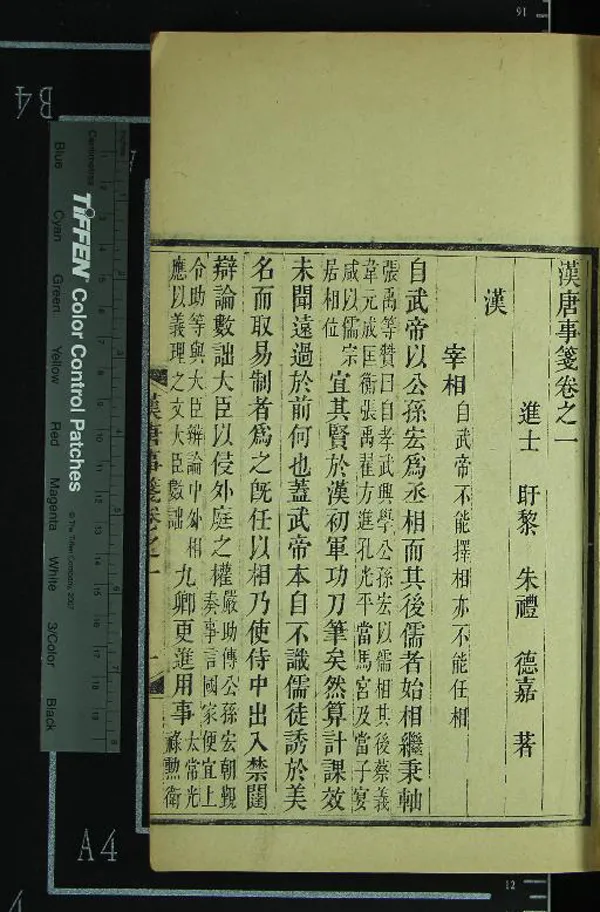 漢唐事箋卷之一
進士 盱黎 朱禮 德嘉 著
漢
宰相 自武帝不能擇相亦不能任相
自武帝以公孫宏爲丞相而其後儒者始相繼秉軸
張禹等贊曰自孝武興學公孫宏以儒相其後蔡義
韋元成匡衡張禹翟方進孔光平當馬宮及當子宴
咸以儒宗
居相位
宜其賢於漢初軍功刀筆矣然算計課效
未聞遠過於前何也蓋武帝本自不識儒徒誘於美
名而取易制者爲之旣任以相乃使侍中出入禁闥
辯論數詘大臣以侵外庭之權
嚴助傳公孫宏朝覲
奏事言國家便宜上
令助等與大臣辨論中外相
應以義理之文大臣數詘
九卿更進用事
太常光
祿勲衛
漢唐事箋卷之一
一
B4
A4
16
12
TIFFEN Color Control Patches
© The Tiffen Company, 2007
Centimetres
Blue
Cyan
Green
Yellow
Red
Magenta
White
3/Color
Black